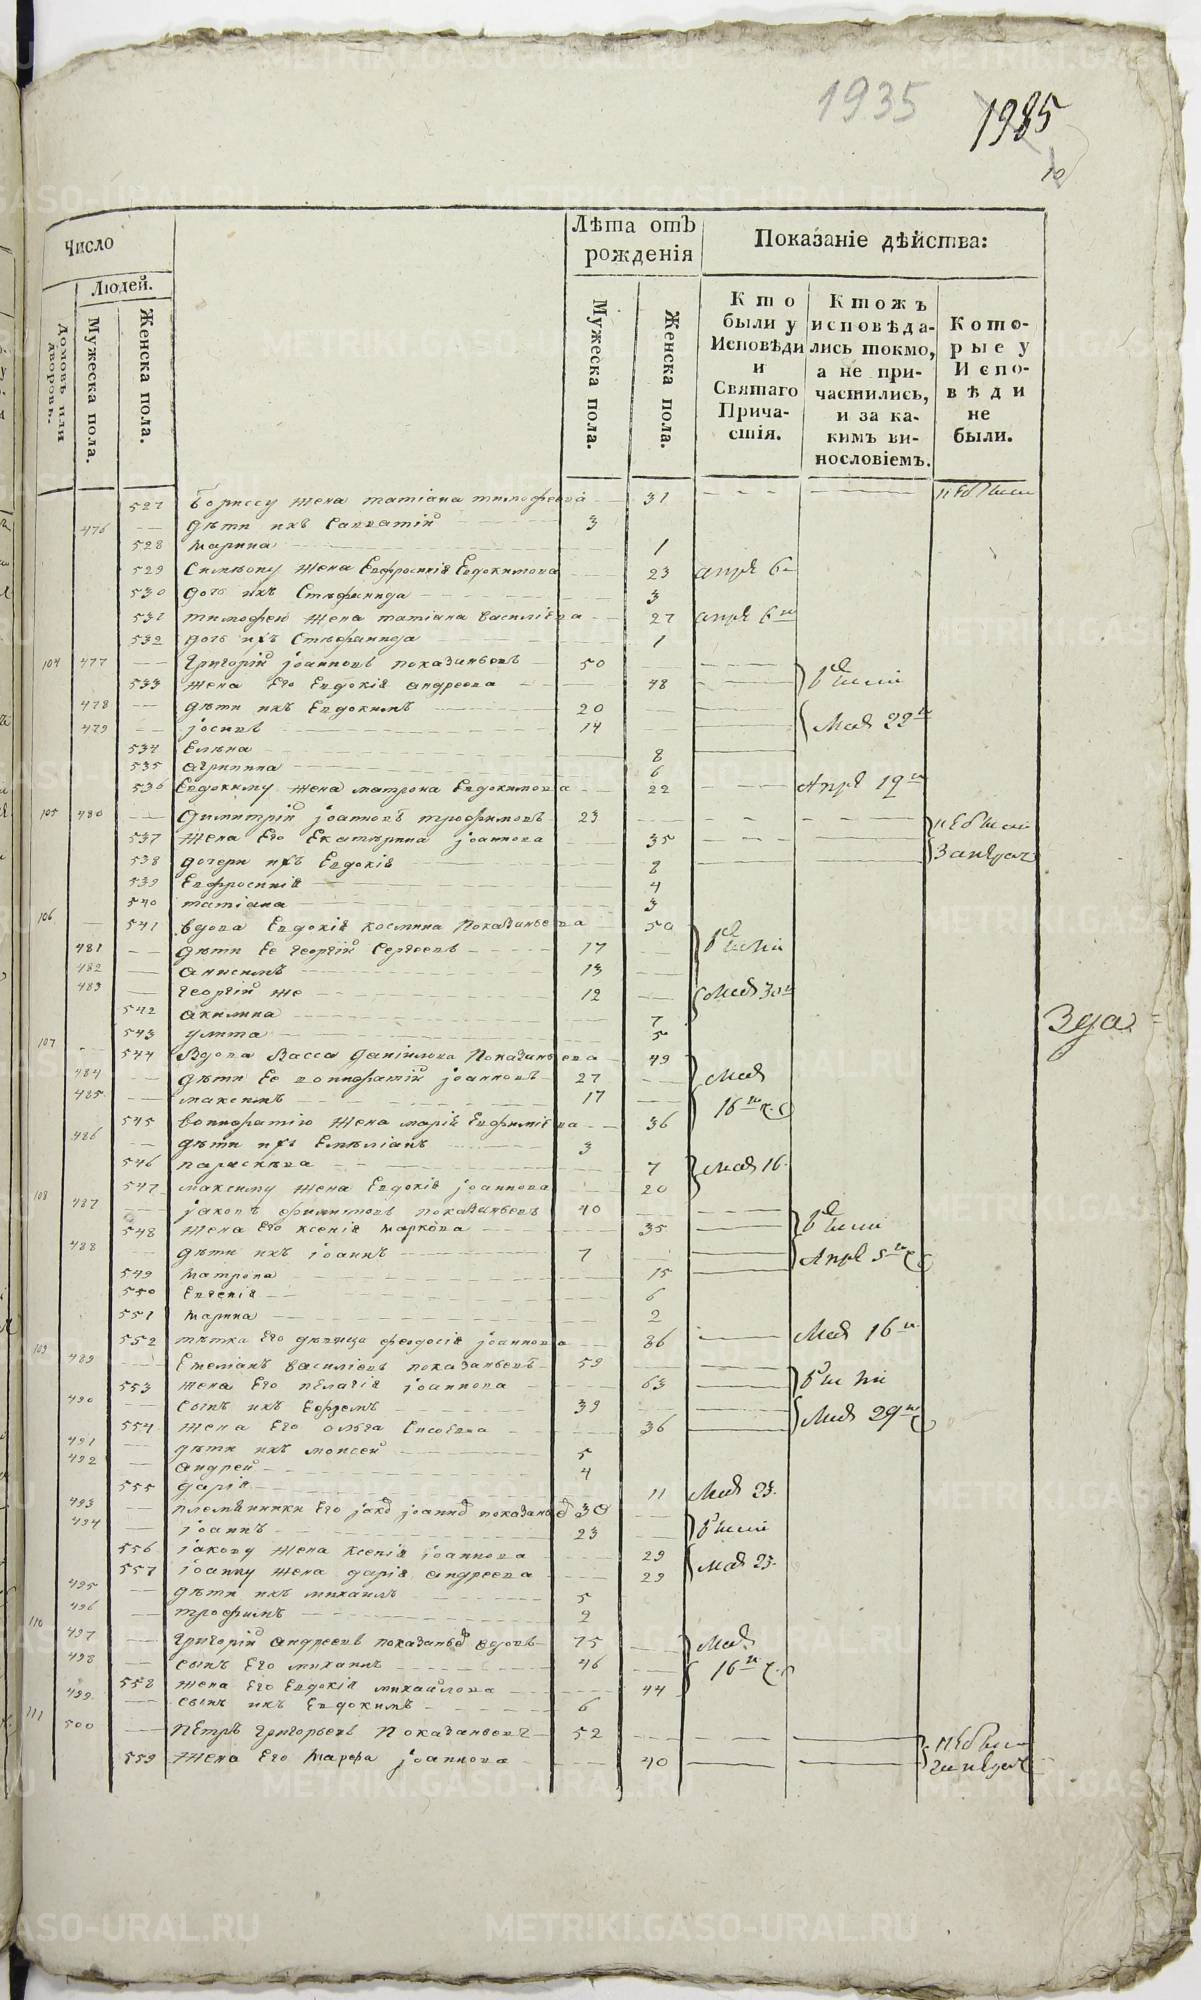 1935
1935
Число
Людей.
Домовъ или дворовъ.
Мужеска пола.
Женска пола.
Лѣта отъ рожденія
Мужеска пола.
Женска пола.
Показаніе дѣйства:
Кто были у Исповѣди и Святаго Причастія.
Ктожъ исповѣдались токмо, а не причастились, и за какимъ винословіемъ.
Которые у Исповѣди не были.
527 Борису жена татіана тимофеева 31 небыли
476 дѣти ихъ Савватій 3
528 марина 1
529 Симеону жена Евфросинія Евдокимова 23 апрѣ 6
530 дочь ихъ Стефанида 3
531 тимофею жена татіана василіева 27 апрѣ 6
532 дочь ихъ Стефанида 1
104 477 григорій іоанновъ показаньевъ 50
533 жена Его Евдокія андреева 48
478 дѣти ихъ Евдокимъ 20
479 іосифъ 14 Маія 22
534 Елена 8
535 агрипина 6
536 Евдокиму жена матрона Евдокимова 22 Апрѣ 19
105 480 димитрій іоанновъ трофимовъ 23 небыли
537 жена Его Екатерина іоаннова 35
538 дочери ихъ Евдокія 8
539 Евфросинія 4
540 татіана 3
106 541 вдова Евдокія космина Показаньева 50
481 дѣти Ее георгій Сергеевъ 17
482 анисимъ 13
483 георгій же 12 Маія 30
542 акилина 7
543 улита 5
107 544 Вдова Васса даніилова Показаньева 49
484 дѣти Ее вонифатій іоанновъ 27 Маія
485 максимъ 17 16
545 вонифатію жена марія Евфиміева 36
486 дѣти ихъ Емеліанъ 3
546 параскева 7 Маія 16
547 максиму жена Евдокія іоаннова 20
108 487 іаковъ филиповъ показаньевъ 40
548 жена Его ксенія маркова 35
488 дѣти ихъ іоаннъ 7 Апрѣ 5
549 матрона 15
550 Евгенія 6
551 марина 2
552 тетка Его дѣвица феодосія іоаннова 36 Маія 16
109 489 Емеліанъ василіевъ показаньевъ 59
553 жена Его пелагія іоаннова 63
490 сынъ ихъ Ефремъ 39 Маія 29
554 жена Его ольга Сисоева 36
491 дѣти ихъ моисей 5
492 андрей 4
555 дарія 11 Маія 23
493 племянники Его іаковъ іоанновъ показаньевъ 30
494 іоаннъ 23
556 іакову жена ксенія іоаннова 29
557 іоанну жена дарія андреева 29 Маія 25
495 дѣти ихъ михаилъ 5
496 трофимъ 2
110 497 григорій андреевъ показаньевъ вдовъ 75 Маія
498 сынъ Его михаилъ 46 16
558 жена Его Евдокія михайлова 44
499 сынъ ихъ Евдокимъ 6
111 500 Петръ григорьевъ Показаньевъ 52 небыли
559 жена Его марфа іоаннова 40